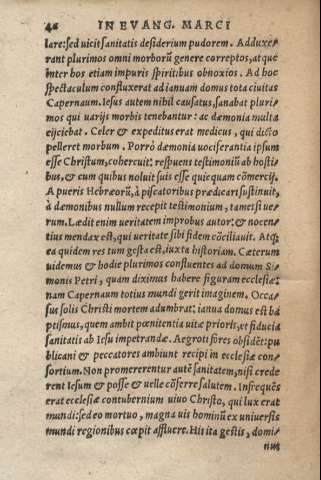 42 IN EVANG. MARCI
lare: sed uicit sanitatis desiderium pudorem. Adduxe-
rant plurimos omni morborũ genere correptos, atque
inter hos etiam impuris spiritibus obnoxios. Ad hoc
spectaculum confluxerat ad ianuam domus tota ciuitas
Capernaum. Iesus autem nihil causatus, sanabat pluri-
mos qui uarijs morbis tenebantur: ac dæmonia multa
eijciebat. Celer & expeditus erat medicus, qui dicto
pelleret morbum. Porrò dæmonia uociferantia ipsum
esse Christum, cohercuit: respuens testimoniũ ab hosti-
bus, & cum quibus noluit suis esse quicquam cõmercij.
A pueris Hebræorũ, à piscatoribus prædicari sustinuit,
à dæmonibus nullum recepit testimonium, tametsi ue-
rum. Lædit enim ueritatem improbus autor: & nocen-
tius mendax est, qui ueritate sibi fidem cõciliauit. Atq́;
ea quidem res tum gesta est, iuxta historiam. Cæterum
uidemus & hodie plurimos confluentes ad domum Si-
monis Petri, quam diximus habere figuram ecclesiæ:
nam Capernaum totius mundi gerit imaginem. Occa-
sus solis Christi mortem adumbrat: ianua domus est ba
ptismus, quem ambit pœnitentia uitæ prioris, et fiducia
sanitatis ab Iesu impetrandæ. Aegroti fores obsidẽt: pu
blicani & peccatores ambiunt recipi in ecclesiæ con-
sortium. Non promererentur autẽ sanitatem, nisi crede
rent Iesum & posse & uelle cõferre salutem. Infrequẽs
erat ecclesiæ contubernium uiuo Christo, qui lux erat
mundi: sed eo mortuo, magna uis hominũ ex uniuersis
mundi regionibus cœpit affluere. His ita gestis, domi-
nus